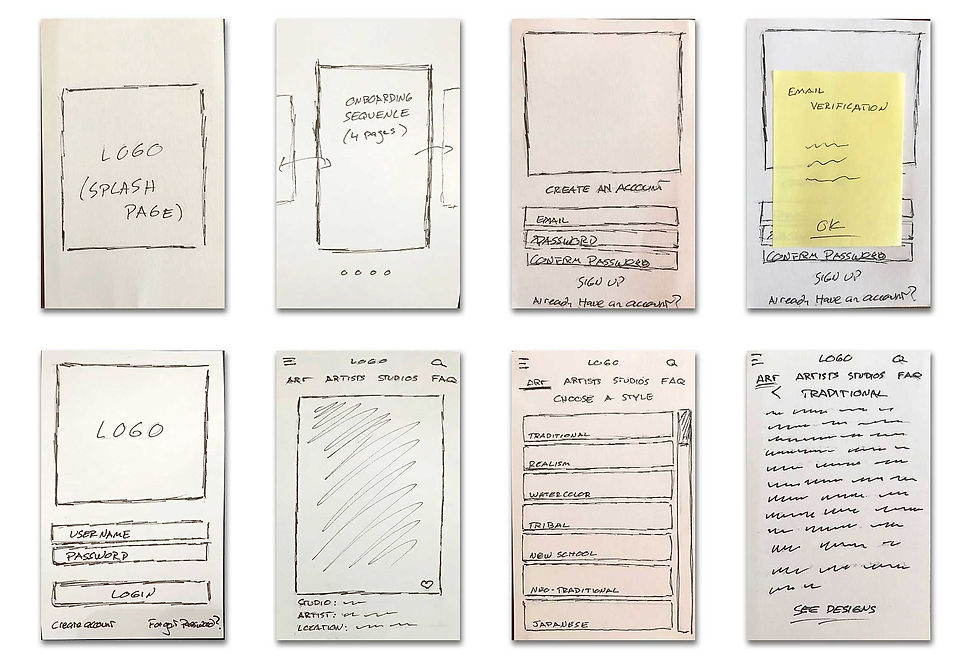 LOGO
(SPLASH
PAGE)
ONBOARDING
SEQUENCE
(4 pages)
CREATE AN ACCOUNT
EMAIL
PASSWORD
CONFIRM PASSWORD
SIGN UP
Already Have an account?
EMAIL
VERIFICATION
OK
CONFIRM PASSWORD
SIGN UP
Already Have an account?
LOGO
USERNAME
PASSWORD
LOGIN
Create account Forgot Password?
LOGO
ART ARTISTS STUDIOS FAQ
STUDIO:
ARTIST:
LOCATION:
LOGO
ART ARTISTS STUDIOS FAQ
CHOOSE A STYLE
TRADITIONAL
REALISM
WATERCOLOR
TRIBAL
NEW SCHOOL
NEO-TRADITIONAL
JAPANESE
LOGO
ART ARTISTS STUDIOS FAQ
< TRADITIONAL
SEE DESIGNS